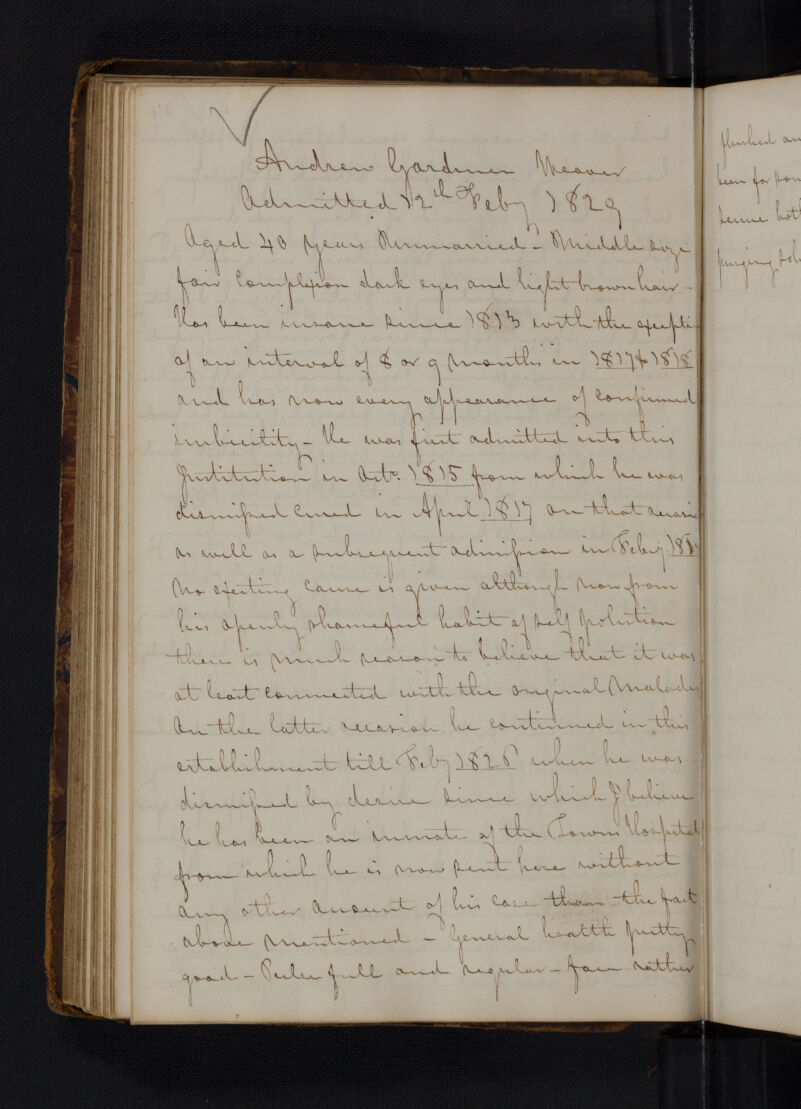 Andrew Gardner Weaver
Admitted 12th Feby 1829
Aged 40 years Unmarried - Middle size
fair Complexion dark eyes and light brown hair -
Has been insane since 1813 with the excepti
of an interval of 8 or 9 months in 1817 & 1818
and has now every appearance of confirmed
imbicility - He was first admitted into this
Institution in Octr. 1815 from which he was
dismissed Cured in April 1817 on that occasio
as well as a subsequent admission in Feby.
No exciting cause is given although now from
his openly shameful habit of self polution
there is much reason to believe that it was
at least connected with the original Malady
On the latter occasion he continued in this
establishment till Feby 1828 when he was
dismissed by desire since which I believe
he has been an inmate of the Towns Hospital
from which he is now sent here without
any other account of his case than the fact
above mentioned - General health pretty
good - Pulse full and regular - face rather
flushed an
been for
bott
purging